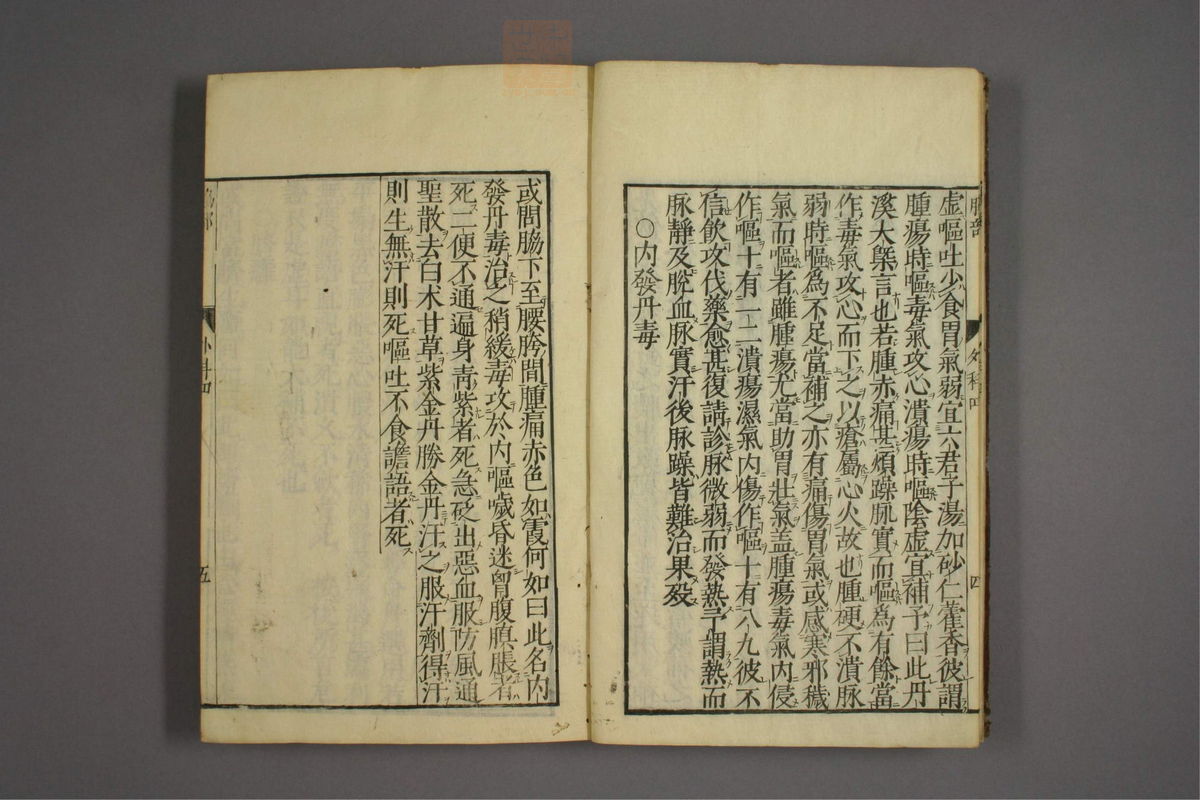 虛嘔吐少食胃氣弱宜六君子湯加砂仁藿香彼謂
腫瘍時嘔毒氣攻心潰瘍時嘔陰虛宜補予曰此丹
溪大槩言也若腫赤痛甚煩躁脉實而嘔爲有餘當
作毒氣攻心而下之以瘡屬心火故也腫硬不潰脉
弱時嘔爲不足當補之亦有痛傷胃氣或感寒邪穢
氣而嘔者雖腫瘍尤當助胃壯氣盖腫瘍毒氣內侵
作嘔十有一二潰瘍濕氣內傷作嘔十有八九彼不
信飲攻伐藥愈甚復請診脉微弱而發熱予謂熱而
脉靜及脫血脉實汗後脉躁皆難治果歿
○內發丹毒
外科四
四
或問脇下至腰胯間腫痛赤色如霞何如曰此名內
發丹毒治之稍緩毒攻於內嘔噦昏迷胷腹䐜脹者
死二便不通遍身靑紫者死急砭出惡血服防風通
聖散去白术甘草紫金丹勝金丹汗之服汗劑得汗
則生無汗則死嘔吐不食譫語者死
外科四
五